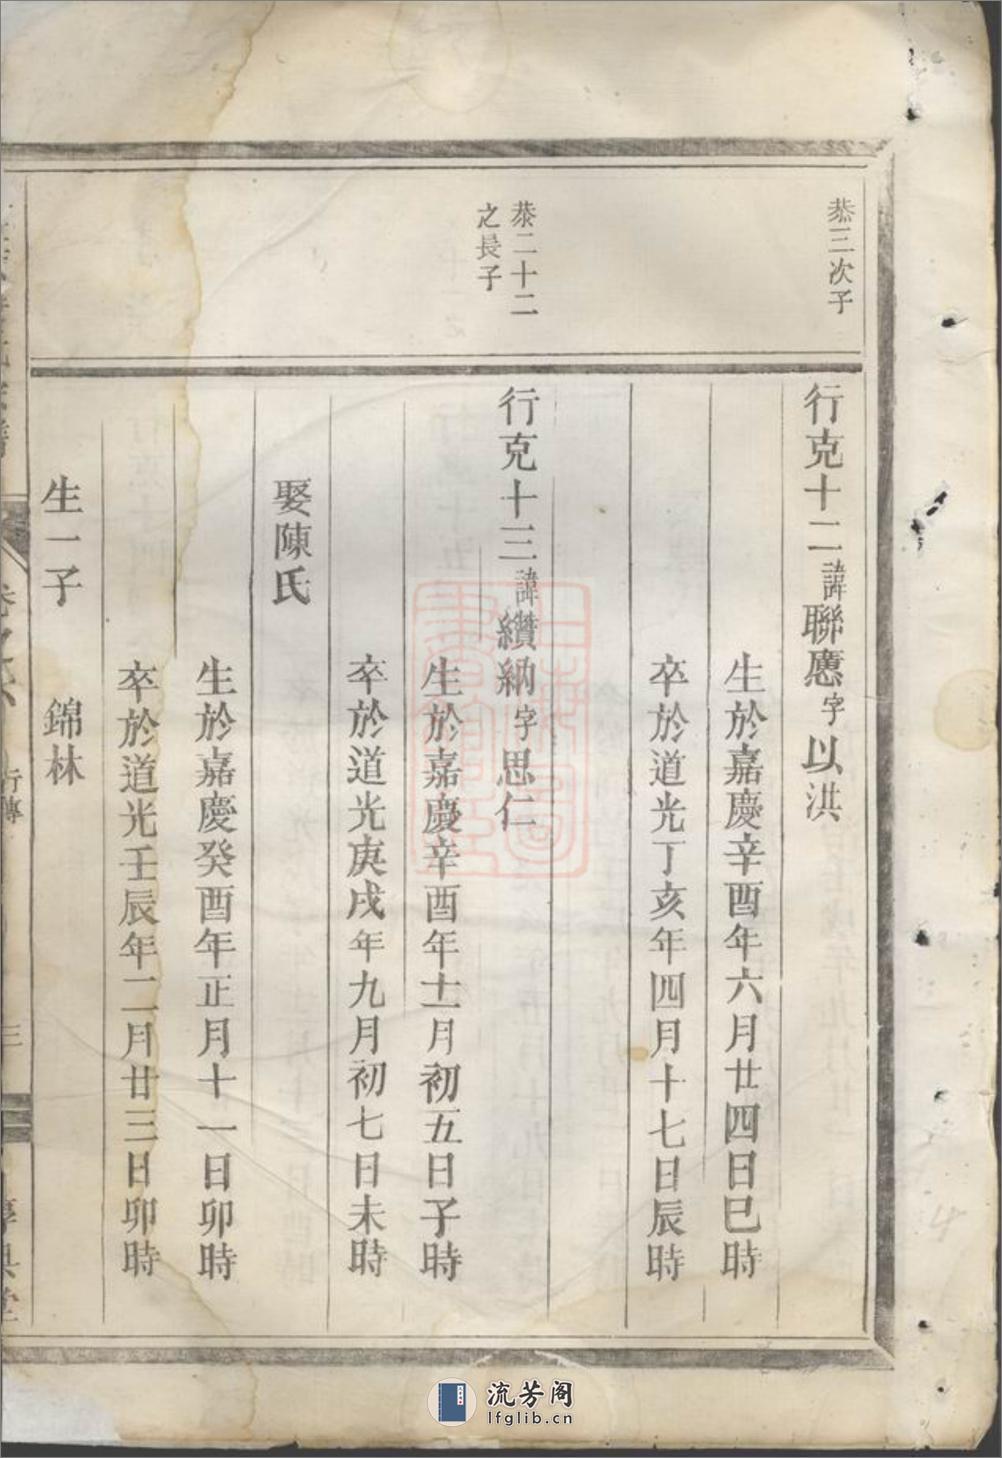 恭三次子
行克十二諱聯應字以洪
生於嘉慶辛酉年六月廿四日巳時
卒於道光丁亥年四月十七日辰時
恭二十二
之長子
行克十三諱纘納字思仁
生於嘉慶辛酉年十一月初五日子時
卒於道光庚戌年九月初七日未時
娶陳氏
生於嘉慶癸酉年正月十一日卯時
卒於道光壬辰年二月廿三日卯時
生一子 錦林
行傳
三
流芳阁
lfglib.cn